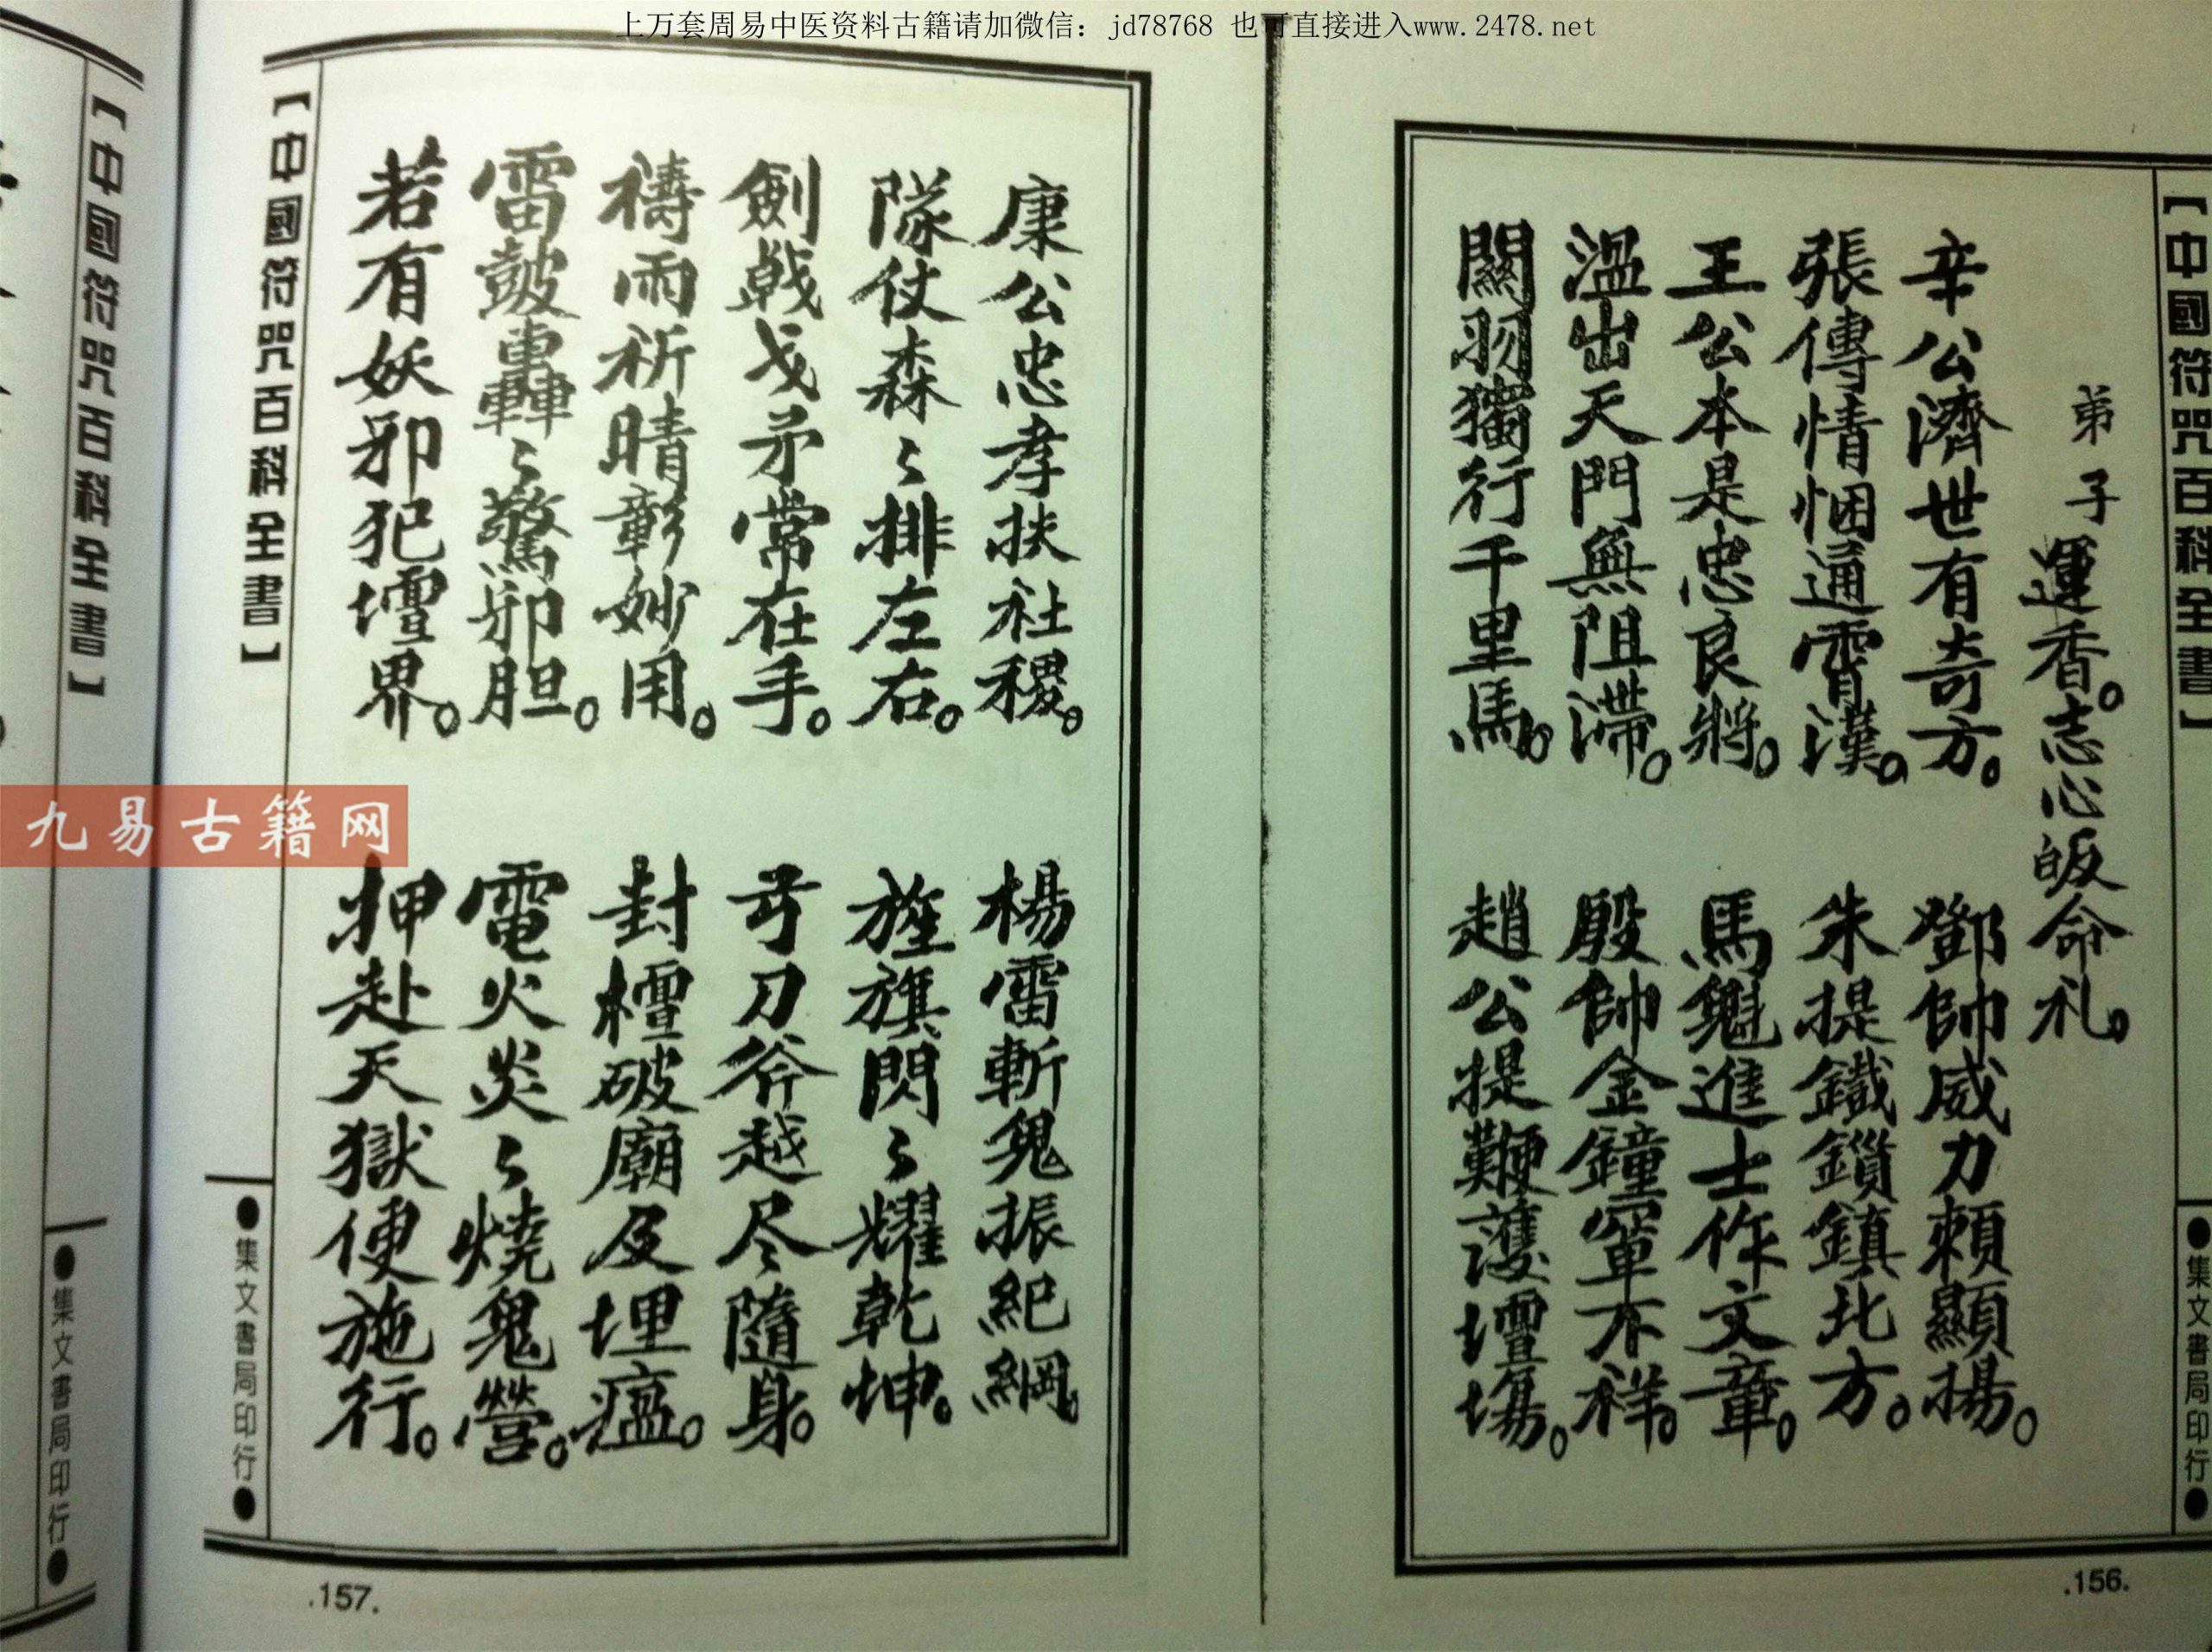 上万套周易中医资料古籍请加微信：jd78768 也可直接进入www.2478.net
【中國符咒百科全書】
●集文書局印行●
弟子運香。志心皈命礼。
辛公濟世有奇方。
鄧帥威力賴顯揚。
張傳情悃通霄漢。
朱提鐵鎖鎮北方。
王公本是忠良將。
馬魁進士作文章。
溫出天門無阻滯。
殷帥金鐘罩不祥。
關羽獨行千里馬。
趙公提鞭護壇場。
.156.
康公忠孝扶社稷。
楊雷斬鬼振紀綱。
隊仗森〻排左右。
旌旗閃〻耀乾坤。
劍戟戈矛常在手。
弓刀斧越尽隨身。
禱雨祈晴彰妙用。
封檀破廟及埋瘟。
雷鼓轟〻驚邪胆。
電火炎〻燒鬼營。
若有妖邪犯壇界。
押赴天獄便施行。
【中國符咒百科全書】
●集文書局印行●
.157.
【中國符咒百科全書】
●集文書局印行●
九易古籍网